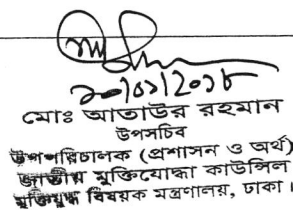 ২০/০১/২০১৮
মোঃ আতাউর রহমান
উপসচিব
উপপরিচালক (প্রশাসন ও অর্থ)
জাতীয় মুক্তিযোদ্ধা কাউন্সিল
মুক্তিযুদ্ধ বিষয়ক মন্ত্রণালয়, ঢাকা।